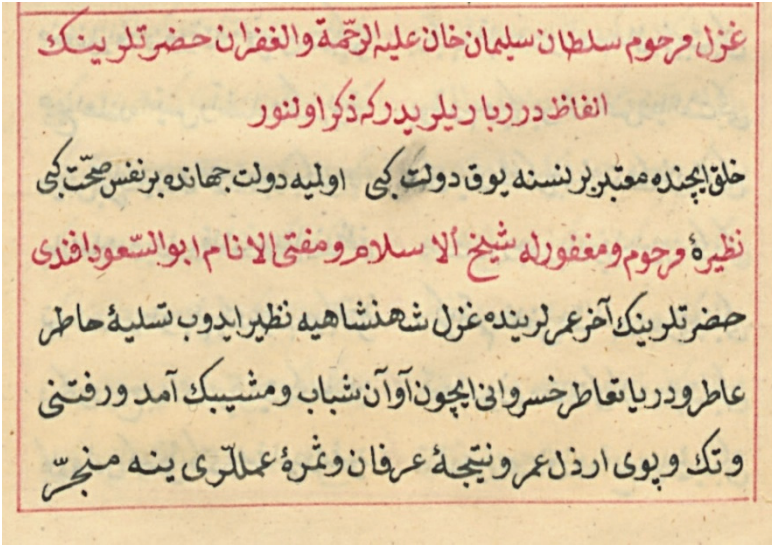 غزل مرحوم سلطان سلیمان خان علیه الرحمة والغفران حضرتلرینك
الفاظ درر باریلریدر که ذکر اولنور
خلق ایچنده معتبر بر نسنه یوق دولت کبی اولمیه دولت جهانده بر نفس صحّت کبی
نظیرهٔ مرحوم ومغفور له شیخ الاسلام ومفتی الانام ابو السّعود افندی
حضرتلرینك آخر عمرلرنده غزل شهنشاهیه نظیر ایدوب تسلیهٔ خاطر
عاطر ودریا تعاطر خسروانی ایچون آوان شباب ومشیبك آمد ورفتنی
وتك وپوی ارذل عمر ونتیجهٔ عرفان وثمرهٔ عمللری ینه منجرّ